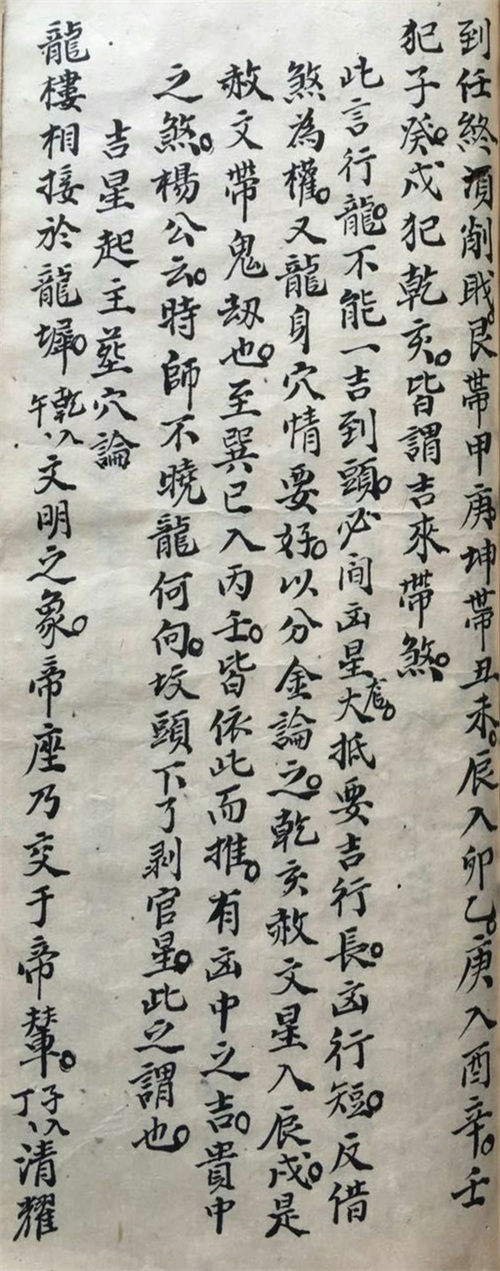 到任終須削戝。艮帶甲庚坤帶丑未。辰入卯乙。庚入酉辛。壬
犯子癸。戍犯乾亥。皆謂吉來帶煞。
此言行龍。不能一吉到頭。必间凶星。大抵要吉行長。凶行短。反借
煞為權。又龍身穴情要好。以分金論之。乾亥赦文星入辰戍。是
赦文帶鬼刼也。至巽巳入丙壬。皆依此而推。有凶中之吉。貴中
之煞。楊公云。時師不曉龍何向。坟頭下了剥官星。此之謂也。
吉星起主塟穴論
龍樓相接於龍墀。乾入午文明之象。帝座乃交于帝輦。子入丁清耀